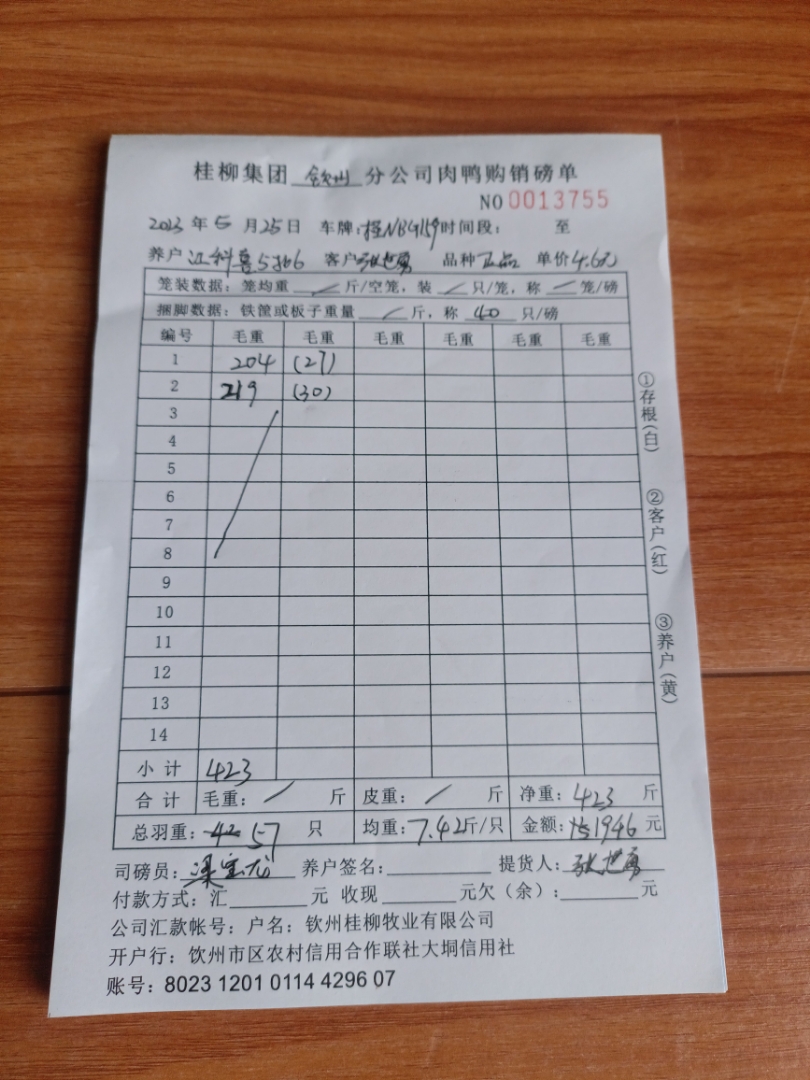 桂柳集团 钦州 分公司肉鸭购销磅单
NO 0013755
2023 年 5 月 25 日 车牌: 桂NBG159 时间段: 至
养户 江科喜5366 客户 张世勇 品种 正品 单价 4.6元
笼装数据: 笼均重 / 斤/空笼, 装 / 只/笼, 称 / 笼/磅
捆脚数据: 铁筐或板子重量 / 斤, 称 40 只/磅
编号 毛重 毛重 毛重 毛重 毛重 毛重
1 204 (27)
2 219 (30)
3
4
5
6
7
8
9
10
11
12
13
14
小计 423
合计 毛重: / 斤 皮重: / 斤 净重: 423 斤
总羽重: 42 57 只 均重: 7.42 斤/只 金额: 1946 元
司磅员: 梁宝龙 养户签名: 提货人: 张世勇
付款方式: 汇 元 收现 元欠(余): 元
公司汇款帐号: 户名: 钦州桂柳牧业有限公司
开户行: 饮州市区农村信用合作联社大垌信用社
账号: 8023 1201 0114 4296 07
①存根(白)
②客户(红)
③养户(黄)